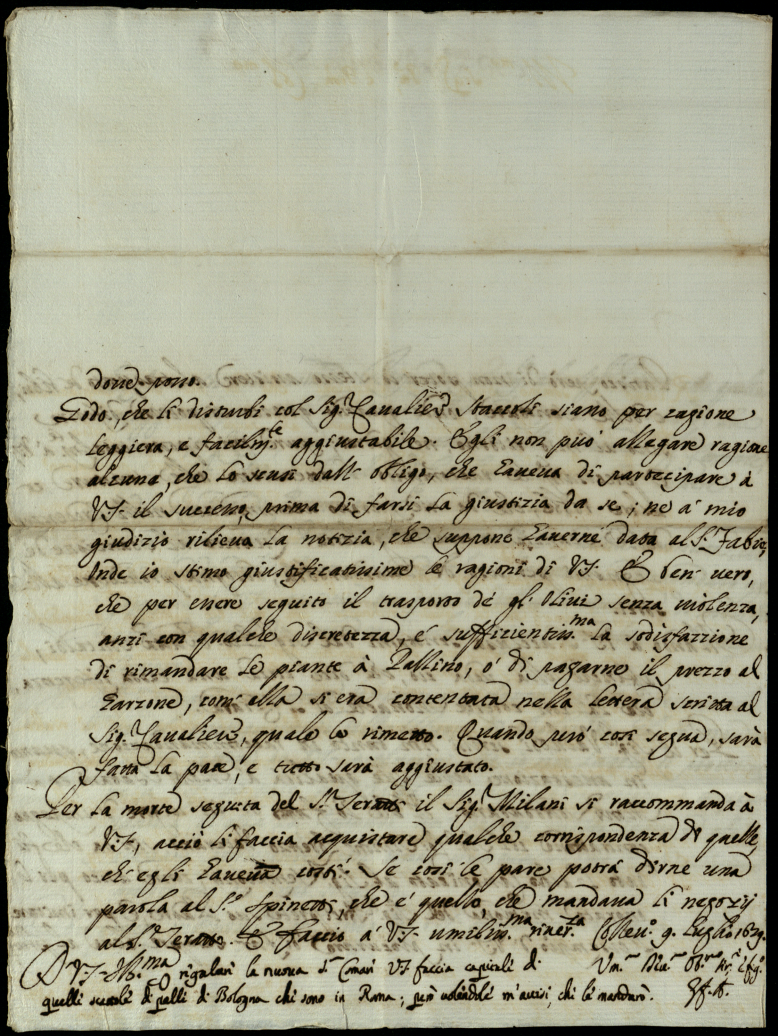 dove posso.
Godo, che li disturbi col Sig.r Cavaliere Staccoli siano per cagione
leggiera, e facilm.te aggiustabile. Egli non può allegare ragione
alcuna, che lo scusi dall' obligo, che haveva di partecipare à
VS. il successo, prima di farsi la giustizia da se; ne à mio
giudizio rilieva la notizia, che suppone haverne data al S.r Fabio,
Onde io stimo giustificatissime le ragioni di VS. E ben vero,
che per essere seguito il trasporto de gl' Olivi senza violenza,
anzi con qualche discretezza, è sufficientiss.ma la sodisfazzione
di rimandare le piante à Pallino, ò di pagarne il prezzo al
Garzone, com' ella si era contentata nella lettera scritta al
Sig.r Cavaliere, quale le rimetto. Quando però così segua, sarà
fatta la pace, e tutto sarà aggiustato.
Per la morte seguita del S.r il Sig.r Milani si raccommanda à
VS, acciò li faccia acquistare qualche corrispondenza di quelle,
ch' egli haveva costì. Se così le pare potrà dirne una
parola al S.r Spinetti, che è quello, che mandava li negozij
al S.r E faccio à VS. umiliss.ma river.za 9. Luglio
D VS. Ill.ma
regalari la nuova S.a Comari VS faccia capitali di
quelli scattole di quelli di Bologna chi sono in Roma; però volendole m'avisi, chi le mandarò.